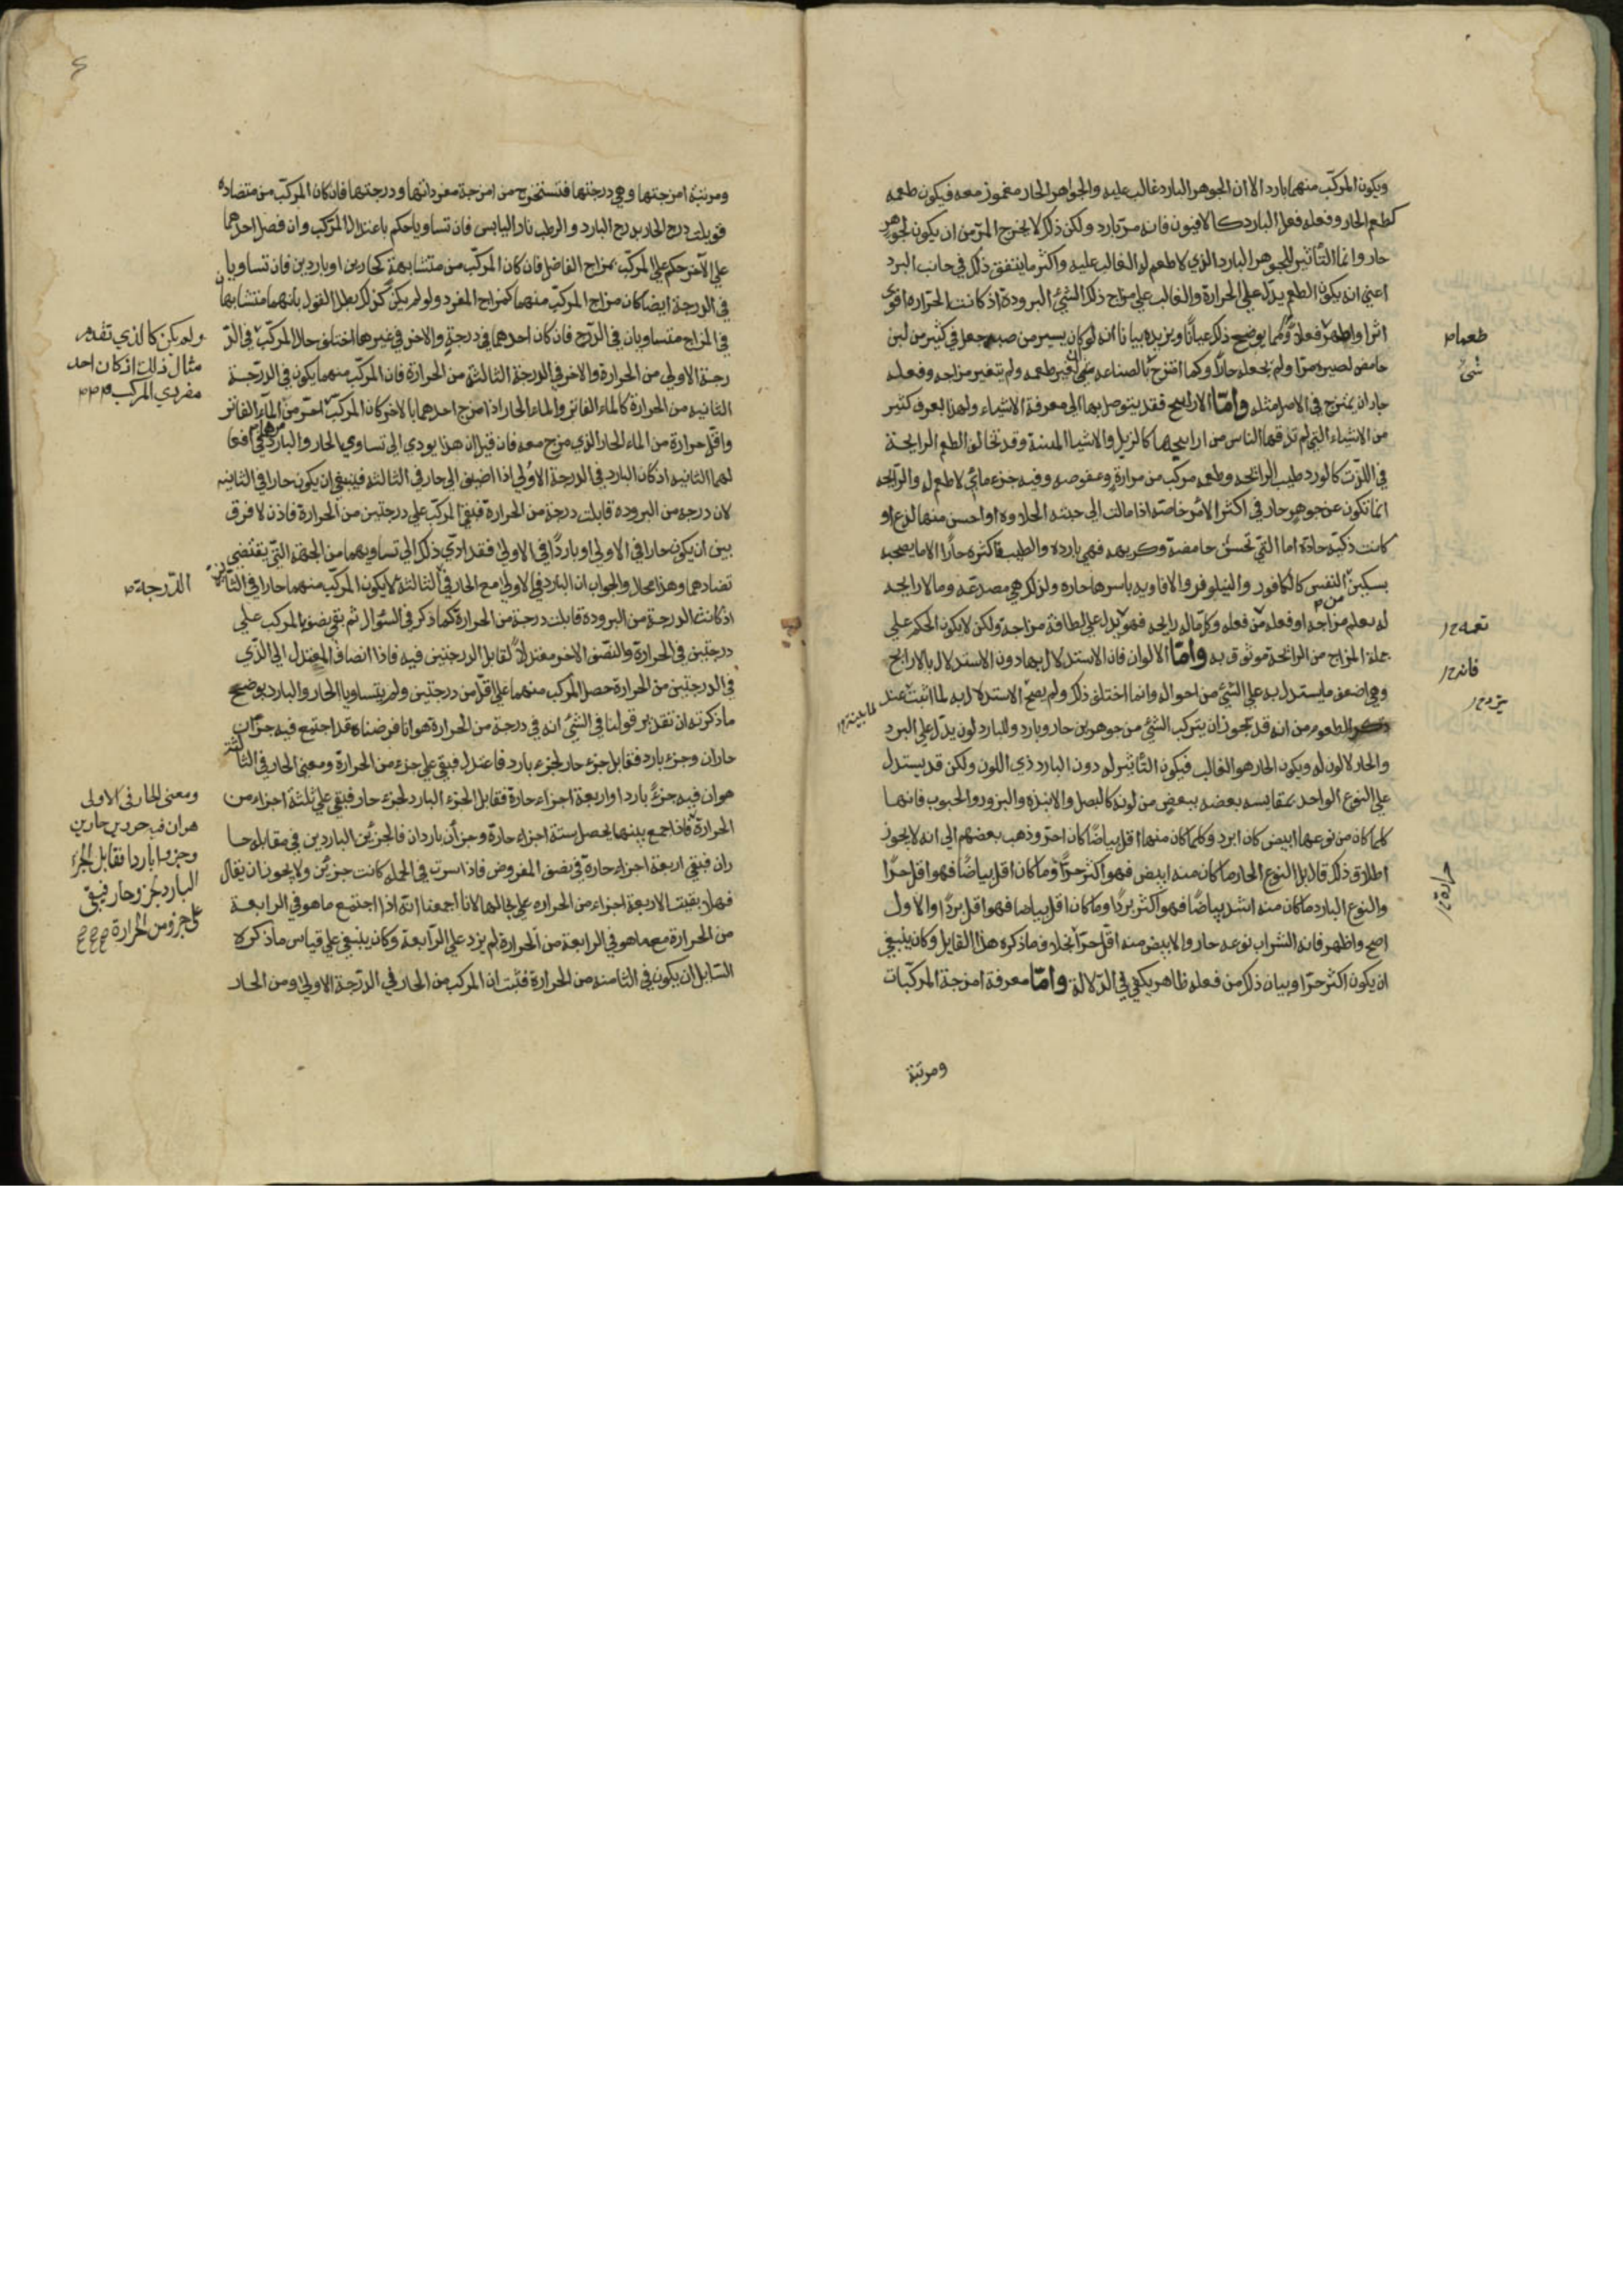 ويكون المركّب منهما بارد الا ان الجوهر البارد غالب عليه والجواهر الحار مغمور معه فيكون طعمه
كطعم الحار وفعله فعل البارد كالافيون فانه مرّ بارد ولكن ذلك لا يخرج المرّ من ان يكون لجوهر
حار وانما التأثير للجوهر البارد الذي لا طعم له الغالب عليه واكثر ما يتفق ذلك في جانب البرد
اعني انه يكون الطعم يدلّ على الحرارة والغالب على مزاج ذلك الشئ البرودة اذ كانت الحرارة اقوى
اثرا واظهر فعلا ومما يوضح ذلك عيانًا ويزيده بيانا انه لو كان يسير من صبر جعل في كثير من لبن
حامض لصيره مرّا ولم يجعله حارًّا وكما امتزج بالصناعه شئ غيّر طعمه ولم يتغير مزاجه وفعله
جاز ان يمتزج في الاصل مثله وامّا الارابيح فقد يتوصل بها الى معرفة الاشياء ولهذا يعرف كثير
من الاشياء التي لم تذقها الناس من ارابيحها كالزبل والاشيا المنتنة وقد تخالف الطعم الرايحة
في اللذّة كالورد طيب الرائحه وطعمه مركب من مرارة وعفوصه وفيه جزء مائي لا طعم له والرائحه
انما تكون عن جوهر حار في اكثر الامر خاصّة اذا مالت الى جنبه الحلاوه او احسن منها لذع او
كانت ذكيّة حادّة اما التي تحسّ حامضة وكريهه فهي بارده والطيب فاكثره حارًّا الا ما يصحبه
تسكين النفس كالكافور والنيلوفر والافاويه باسرها حاره ولذلك هي مصدعّه وما لا رايحه
له يعلم مزاجه او فعله من فعله وكلّ ما له رايحه فهو يدل على لطافة مزاجه ولكن لا يكون الحكم على
جملة المزاج من الرائحة موثوق به وامّا الالوان فان الاستدلال بها دون الاستدلال بالارابيح
وهي اضعف ما يستدل به على الشئ من احواله وانما اختلف ذلك ولم يصحّ الاستدلال به لما اثبت عند
ذكر الطعوم من انه قد يجوز ان يتركب الشئ من جوهرين حار وبارد وللبارد لون يدلّ على البرد
والحار لا لون له ويكون الحار هو الغالب فيكون التأثير له دون البارد ذي اللون ولكن قد يستدل
على النوع الواحد بمقايسه بعضه ببعض من لونه كالبصل والانبذه والبزور والحبوب فانهما
كلما كان من نوعها ابيض كان ابرد وكلما كان منها اقل بياضًا كان احرّ وذهب بعضهم الى انه لا يجوز
اطلاق ذلك قال بل النوع الحار ما كان منه ابيض فهو اكثر حرًّا وما كان اقل بياضًا فهو اقل حرًّا
والنوع البارد ما كان منه اشد بياضًا فهو اكثر بردًا وما كان اقل بياضا فهو اقل بردًا والاول
اصح واظهر فانه الشراب نوعه حار والابيض منه اقل حرّا بخلاف ما ذكره هذا القايل وكان ينبغي
ان يكون اكثر حرّا وبيان ذلك من فعله ظاهر يكفي في الدلالة وامّا معرفة امزجة المركّبات
ومرتبة
طعمام
شئ
ومرتبة امزجتها وهي درجتها فتستخرج من امزجة مفرداتها ودرجتها فان كان المركّب من متضاده
قوبلت درج الحار بدرج البارد والرطب باليابس فان تساويا حكم باعتدال المركّب وان فضل احدهما
على الآخر حكم على المركّب بمزاج الفاضل فان كان المركّب من متشابهة كحارين او باردين فان تساويا
في الدرجة ايضا كان مزاج المركّب منهما كمزاج المفرد ولو لم يكن كذلك بطل القول بانهما متشابهان
في المزاج متساويان في الدرج فان كان احدهما في درجة والاخر في غيرها اختلف حال المركّب في الدّ
رجة الاولى من الحرارة والاخر في الدرجة الثالثة من الحرارة فان المركّب منهما يكون في الدرّجة
الثانيه من الحرارة كالماء الفاتر والماء الحار اذا امزج احدهما بالاخر كان المركّب احرّ من الماء الفاتر
واقل حرارة من الماء الحار الذي مزج معه فان قيل ان هذا يودي الى تساوي الحار والبارد في افعا
لهما الثانيه اذ كان البارد في الدرجة الاولى اذا اضيف الى حار في الثالثه فينبغي ان يكون حارا في الثانيه
لان درجه من البروده قابلت درجة من الحرارة فبقي المركّب على درجتين من الحرارة فاذن لا فرق
بين ان يكون حارا في الاولى او باردًا في الاولى فقد ادّى ذلك الى تساويهما من الجهة التي يقتضي
تضادهما وهذا محال والجواب ان البارد في الاولى مع الحار في الثالثة لا يكون المركّب منهما حارا في الثانية
اذ كانت الدرجة من البرودة قابلت درجة من الحرارة كما ذكر في السّؤال ثم بقي نصف المركب على
درجتين في الحرارة والنصف الاخر معتدلًا لتقابل الدرجتين فيه فاذا انضاف المعتدل الى الذّي
في الدرجتين من الحرارة حصل المركب منهما على اقل من درجتين ولم يتساويا الحار والبارد يوضح
ما ذكرته ان تقدير قولنا في الشئ انه في درجة من الحرارة هو انا فرضناه قد اجتمع فيه جزآن
حاران وجزء بارد فقابل جزء حار لجزء بارد فاعتدل فبقي على جزء من الحرارة ومعنى الحار في الثالثة
هو ان فيه جزءً باردا واربعة اجزاء حارة فقابل الجزء البارد لجزء حار فبقي على ثلثة اجزاء من
الحرارة فاذا جمع بينهما يحصل ستة اجزاء حارة وجزأن باردان فالجزئين الباردين في مقابلة حا
ران فبقي اربعة اجزاء حارة في نصف المفروض فاذا سرت في الجمله كانت جزئين ولا يجوز ان يقال
فهلا بقيت الاربعة اجزاء من الحراره على بحالها لانا اجمعنا انّه اذا اجتمع ما هو في الرابعة
من الحرارة مع ما هو في الرابعة من الحرارة لم يزد على الرّابعة وكان ينبغي على قياس ما ذكر لا
السّايل ان يكون في الثامنه من الحرارة فثبت ان المركب من الحار في الدرّجة الاولى ومن الحار
ولم يكن كالذي تقدم
مثال ذالك اذ كان احد
مفردي المركب
الدّرجة
ومعنى الحار في الاولى
هو ان فيه جزوين حارين
وجزوا باردا فقابل الجزء
البارد لجزو حار فبقى
على جزو من الحرارة